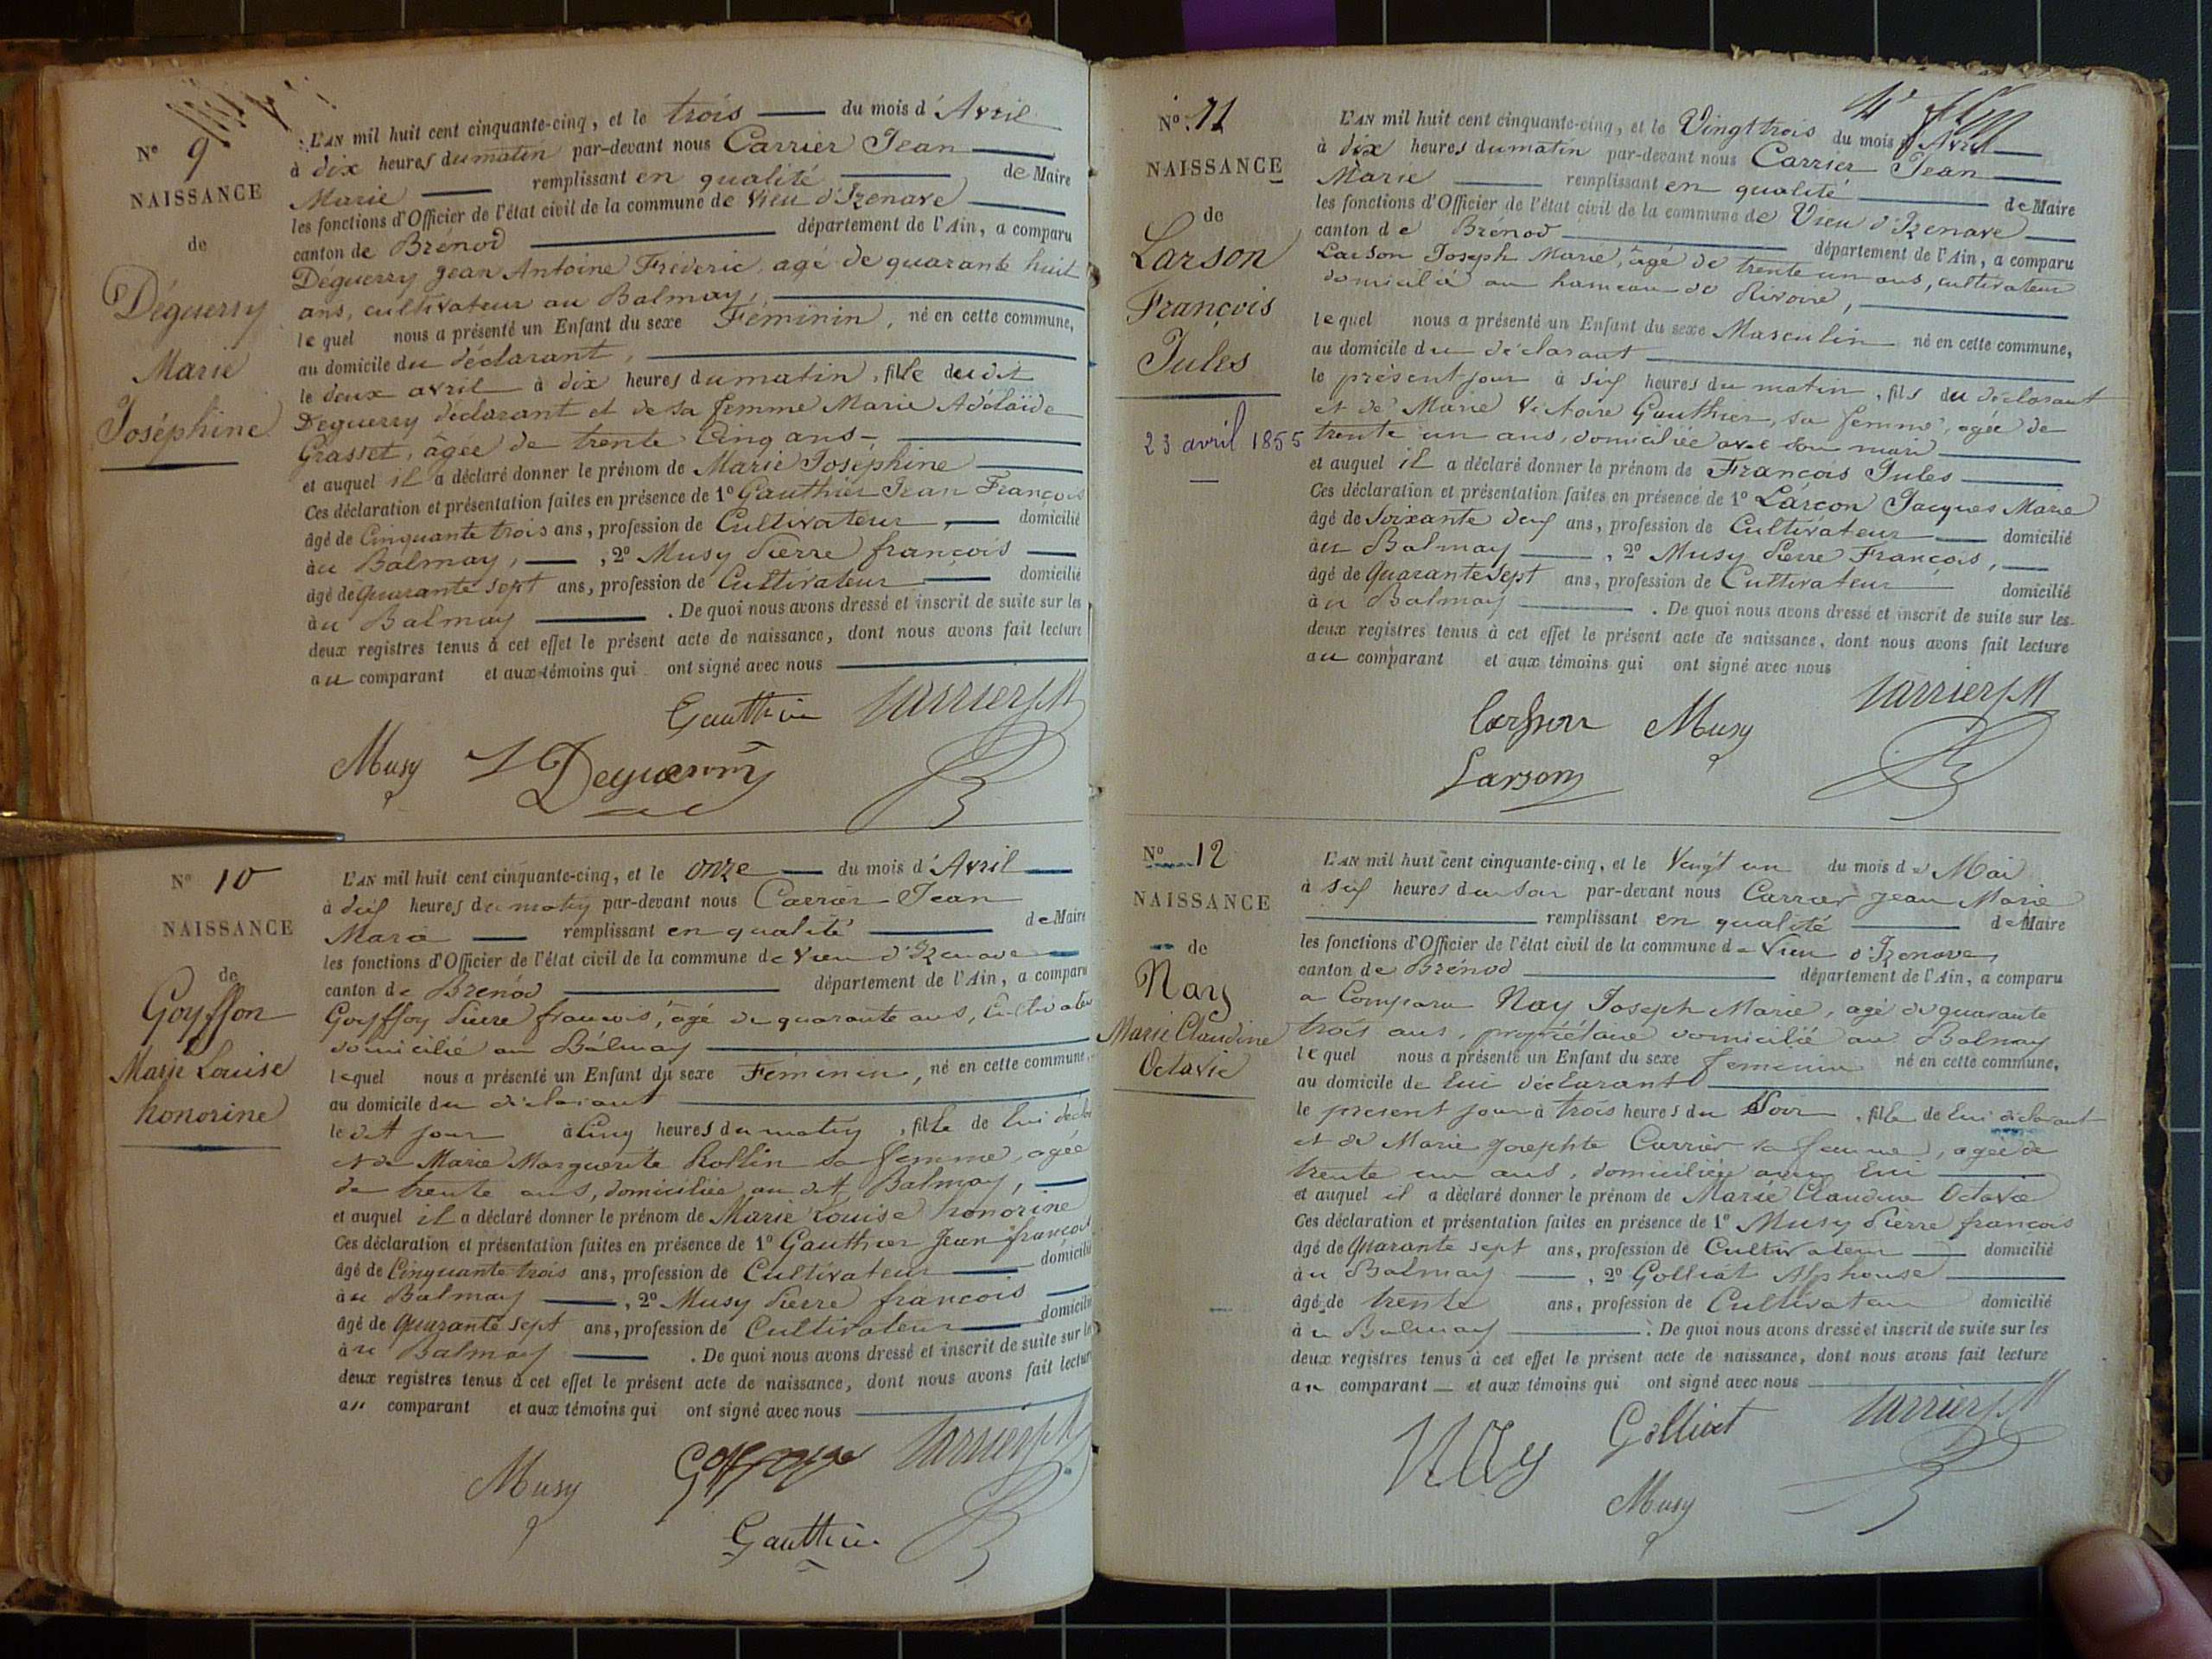 N° 9
NAISSANCE
de
Déguerry
Marie
Joséphine
L'AN mil huit cent cinquante-cinq, et le trois du mois d'Avril
à dix heures du matin par-devant nous Carrier Jean
Marie remplissant en qualité de Maire
les fonctions d'Officier de l'état civil de la commune de Vieu d'Izenave
canton de Brénod département de l'Ain, a comparu
Déguerry Jean Antoine Frédéric, agé de quarante huit
ans, cultivateur au Balmay,
lequel nous a présenté un Enfant du sexe Féminin, né en cette commune,
au domicile du déclarant,
le deux avril à dix heures du matin, fille du dit
Deguerry déclarant et de sa femme Marie Adélaïde
Grasset, âgée de trente cinq ans
et auquel il a déclaré donner le prénom de Marie Joséphine
Ces déclaration et présentation faites en présence de 1° Gauthier Jean François
âgé de Cinquante trois ans, profession de Cultivateur, domicilié
au Balmay, , 2° Musy Pierre françois
âgé de quarante sept ans, profession de Cultivateur domicilié
au Balmay . De quoi nous avons dressé et inscrit de suite sur les
deux registres tenus à cet effet le présent acte de naissance, dont nous avons fait lecture
au comparant et aux témoins qui ont signé avec nous
Gauthier Carrier J M
Musy Deguerry
N° 10
NAISSANCE
de
Goyffon
Marie Louise
honorine
L'AN mil huit cent cinquante-cinq, et le onze du mois d'Avril
à dix heures du matin par-devant nous Carrier Jean
Marie remplissant en qualité de Maire
les fonctions d'Officier de l'état civil de la commune de Vieu d'Izenave
canton de Brénod département de l'Ain, a comparu
Goyffon Pierre françois, âgé de quarante ans, Cultivateur
domicilié au Balmay
lequel nous a présenté un Enfant du sexe Féminin, né en cette commune,
au domicile du déclarant
le dit jour à Cinq heures du matin, fille de lui
et de Marie Marguerite Rollin sa femme, agée
de trente ans, domiciliée au dit Balmay,
et auquel il a déclaré donner le prénom de Marie Louise honorine
Ces déclaration et présentation faites en présence de 1° Gauthier Jean françois
âgé de Cinquante trois ans, profession de Cultivateur domicilié
au Balmay , 2° Musy Pierre françois
âgé de quarante sept ans, profession de Cultivateur domicilié
au Balmay . De quoi nous avons dressé et inscrit de suite sur les
deux registres tenus à cet effet le présent acte de naissance, dont nous avons fait lecture
au comparant et aux témoins qui ont signé avec nous
Musy Carrier J M
Gauthier
N° 11
NAISSANCE
de
Larson
François
Jules
23 avril 1855
L'AN mil huit cent cinquante-cinq, et le Vingt trois du mois d'Avril
à dix heures du matin par-devant nous Carrier Jean
Marie remplissant en qualité de Maire
les fonctions d'Officier de l'état civil de la commune de Vieu d'Izenave
canton de Brénod département de l'Ain, a comparu
Larson Joseph Marie, âgé de trente un ans, cultivateur
domicilié au hameau de Rivoire,
lequel nous a présenté un Enfant du sexe Masculin né en cette commune,
au domicile du déclarant
le présent jour à six heures du matin, fils du déclarant
et de Marie Victoire Gauthier, sa femme, agée de
trente un ans, domiciliée avec son mari
et auquel il a déclaré donner le prénom de François Jules
Ces déclaration et présentation faites en présence de 1° Larçon Jacques Marie
âgé de Soixante deux ans, profession de Cultivateur domicilié
au Balmay , 2° Musy Pierre François,
âgé de Quarante sept ans, profession de Cultivateur domicilié
au Balmay . De quoi nous avons dressé et inscrit de suite sur les
deux registres tenus à cet effet le présent acte de naissance, dont nous avons fait lecture
au comparant et aux témoins qui ont signé avec nous
Musy Carrier J M
Larson
N° 12
NAISSANCE
de
Nay
Marie Claudine
Octavie
L'AN mil huit cent cinquante-cinq, et le Vingt un du mois de Mai
à six heures du soir par-devant nous Carrier Jean Marie
remplissant en qualité de Maire
les fonctions d'Officier de l'état civil de la commune de Vieu d'Izenave
canton de Brénod département de l'Ain, a comparu
a Comparu Nay Joseph Marie, agé de quarante
trois ans, propriétaire domicilié au Balmay
lequel nous a présenté un Enfant du sexe féminin né en cette commune,
au domicile de lui déclarant
le présent jour à trois heures du Soir, fille de lui déclarant
et de Marie Josephte Carrier sa femme, agée de
trente un ans, domiciliée avec lui
et auquel il a déclaré donner le prénom de Marie Claudine Octavie
Ces déclaration et présentation faites en présence de 1° Musy Pierre françois
âgé de Quarante sept ans, profession de Cultivateur domicilié
au Balmay , 2° Golliat Alphonse
âgé de trente ans, profession de Cultivateur domicilié
au Balmay . De quoi nous avons dressé et inscrit de suite sur les
deux registres tenus à cet effet le présent acte de naissance, dont nous avons fait lecture
au comparant et aux témoins qui ont signé avec nous
NAy Golliat Carrier J M
Musy